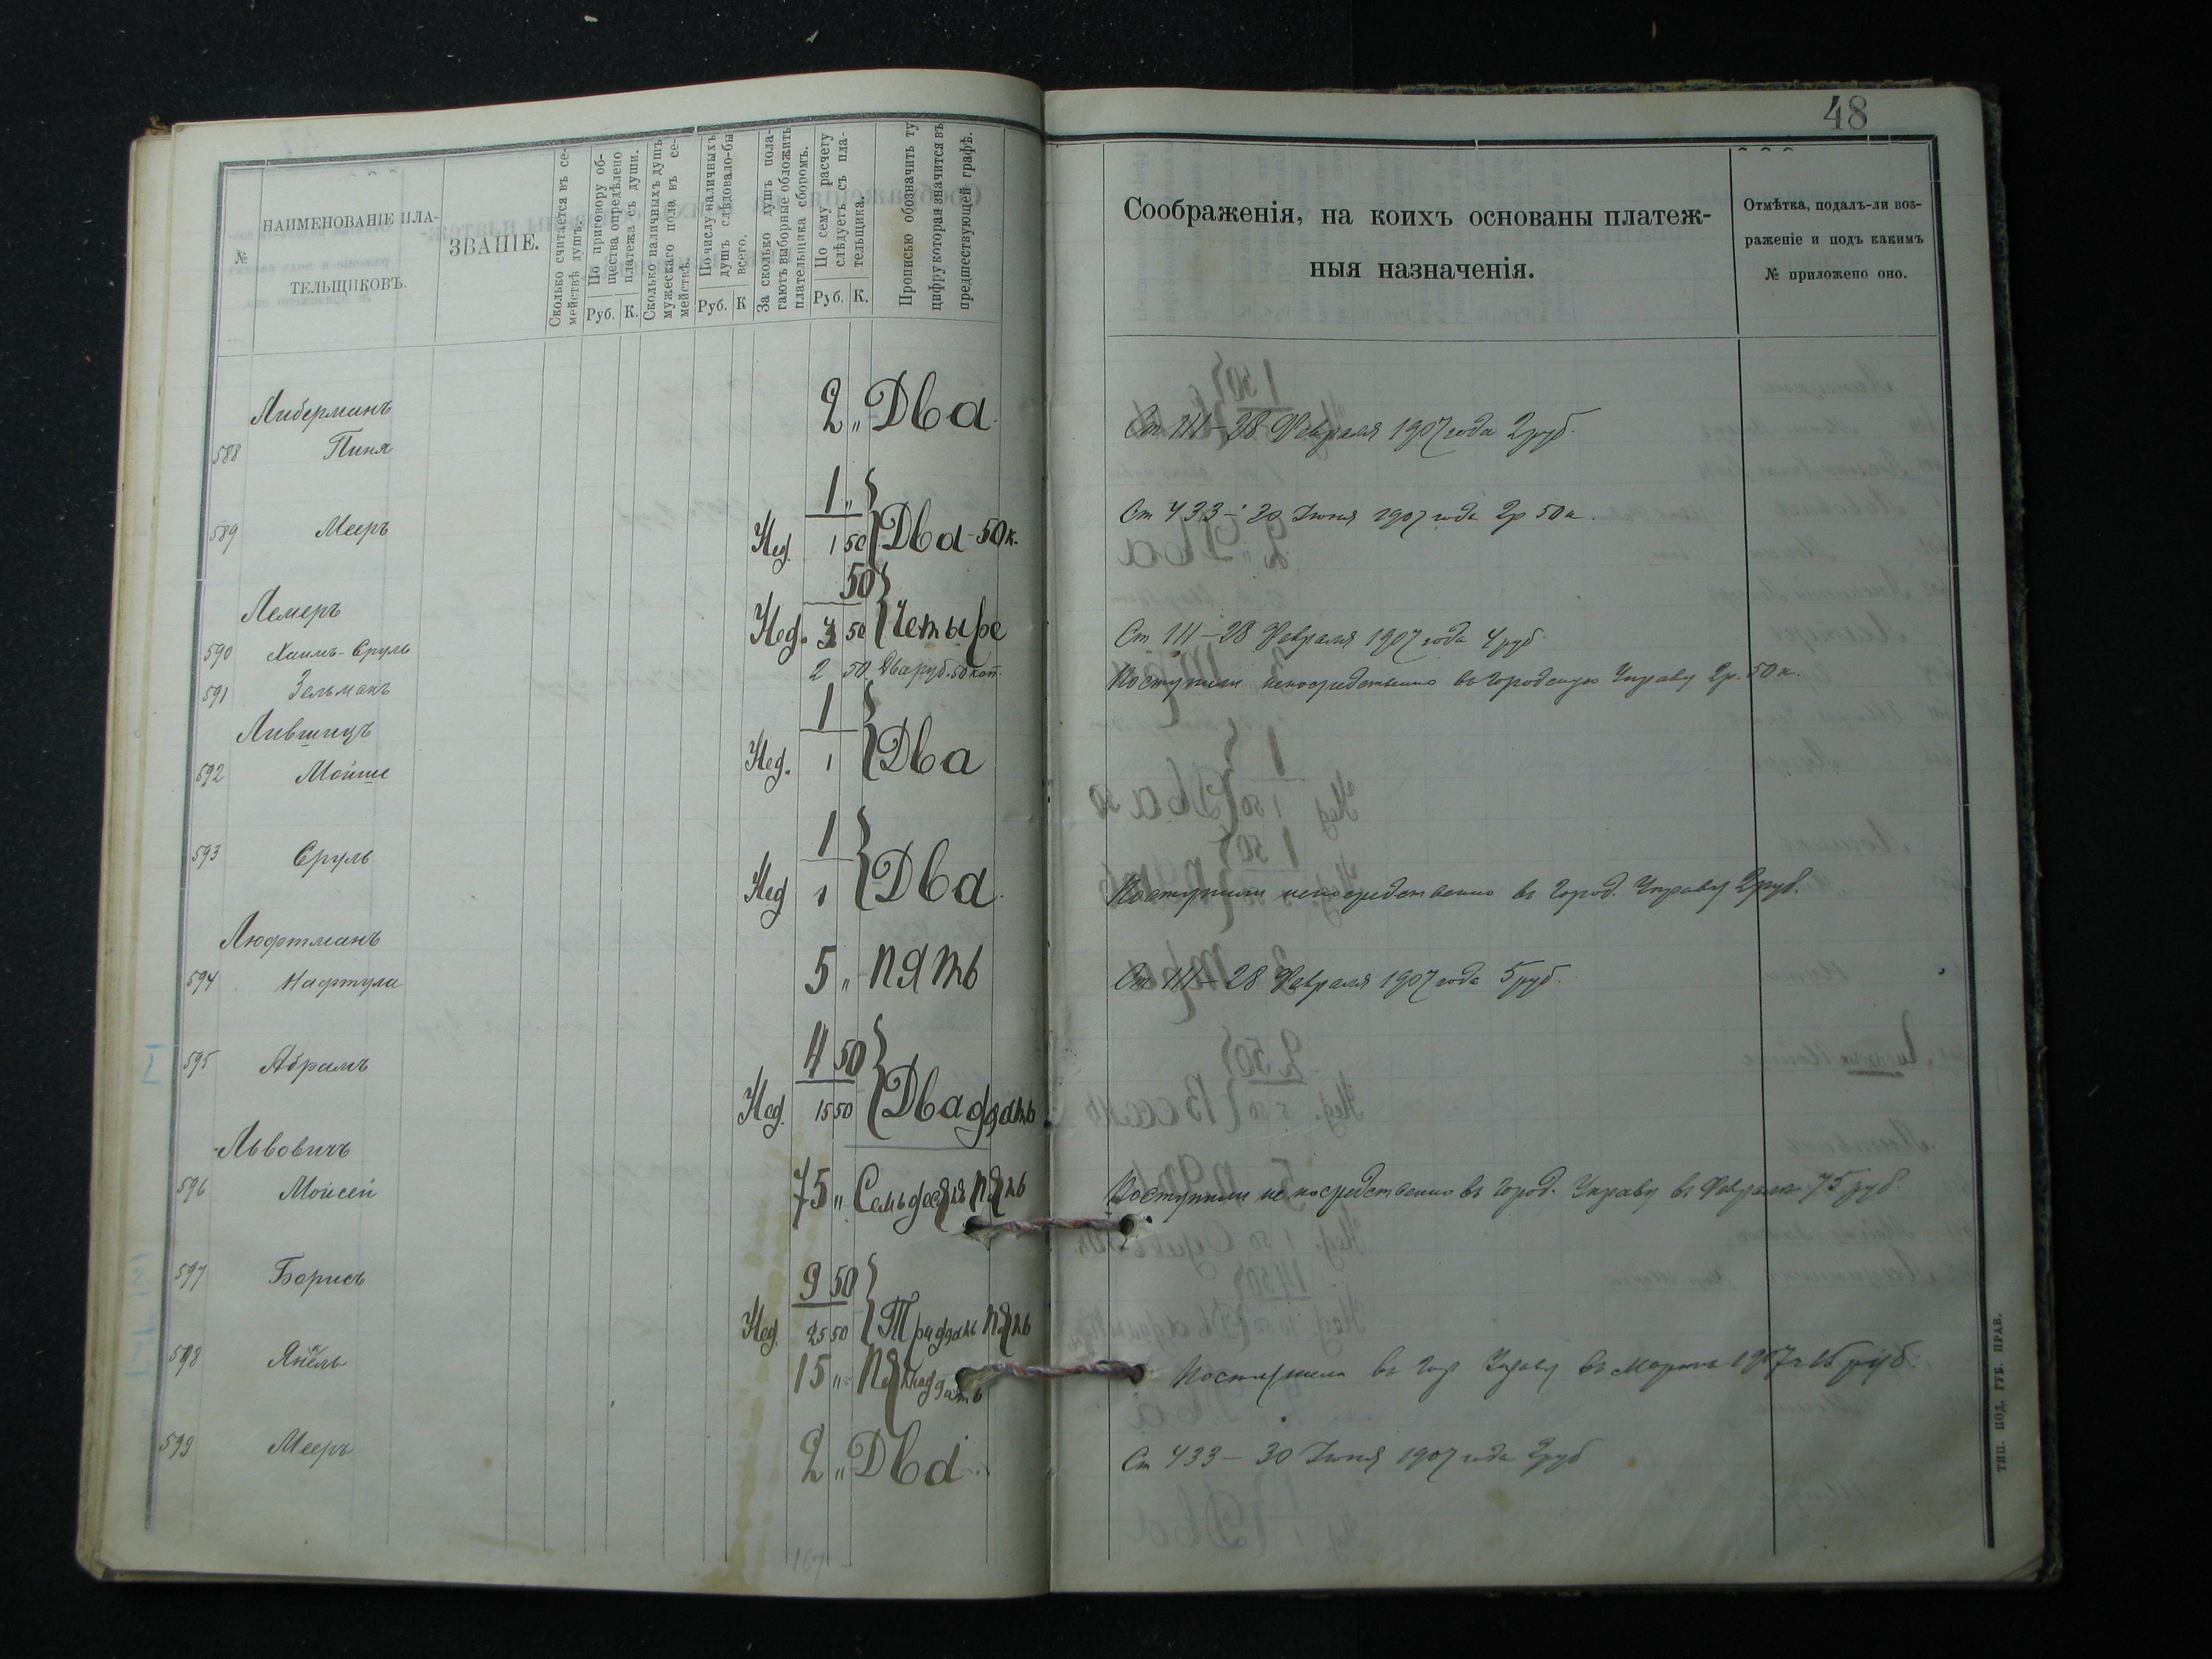 48
№
НАИМЕНОВАНІЕ ПЛА-
ТЕЛЬЩИКОВЪ.
ЗВАНІЕ.
Сколько считается въ се-
мействѣ душъ.
По приговору об-
щества опредѣлено
платежа съ души.
Руб. К.
Сколько наличныхъ душъ
мужескаго пола въ се-
мействѣ.
По числу наличныхъ
душъ слѣдовало-бы
всего.
Руб. К
За сколько душъ пола-
гаютъ выборные обложить
плательщика сборомъ.
По сему расчету
слѣдуетъ съ пла-
тельщика.
Руб. К.
Прописью обозначить ту
цифру которая значится въ
предшествующей графѣ.
Соображенія, на коихъ основаны платеж-
ныя назначенія.
Отмѣтка, подалъ-ли воз-
раженіе и подъ какимъ
№ приложено оно.
Либерманъ
588 Пиня 2 „ Два
Ст 111 – 28 Февраля 1907 года 2 руб.
1 „
589 Мееръ Нед. 1 50 Два - 50 к.
Ст 433 – 30 Іюня 1907 года 2 р 50 к.
Лемеръ
50
590 Хаимъ-Сруль Нед. 3 50 Четыре
Ст 111 – 28 Февраля 1907 года 4 руб
591 Зельманъ 2 50 Два руб. 50 коп.
Поступили непосредственно въ Городскую Управу 2 р. 50 к.
Лившицъ
1
592 Мойше Нед. 1 Два
1
593 Сруль Нед 1 Два
Поступили непосредственно въ Город. Управу 2 руб.
Люфтманъ
594 Нафтула 5 „ пять
Ст 111 – 28 Февраля 1907 года 5 руб.
4 50
595 Абрамъ Нед. 15 50 Двадцать
Львовичъ
596 Мойсей 75 „ Семьдесят пять
Поступили непосредственно въ Город. Управу въ Феврале 75 руб.
9 50
597 Борисъ Нед. 25 50 Тридцать пять
598 Янкель 15 „ Пятнадцать
Поступили въ Гор Управу въ Марте 1907 г 15 руб.
599 Мееръ 2 „ Два
Ст 433 – 30 Іюня 1907 года 2 руб
ТИП. ПОД. ГУБ. ПРАВ.